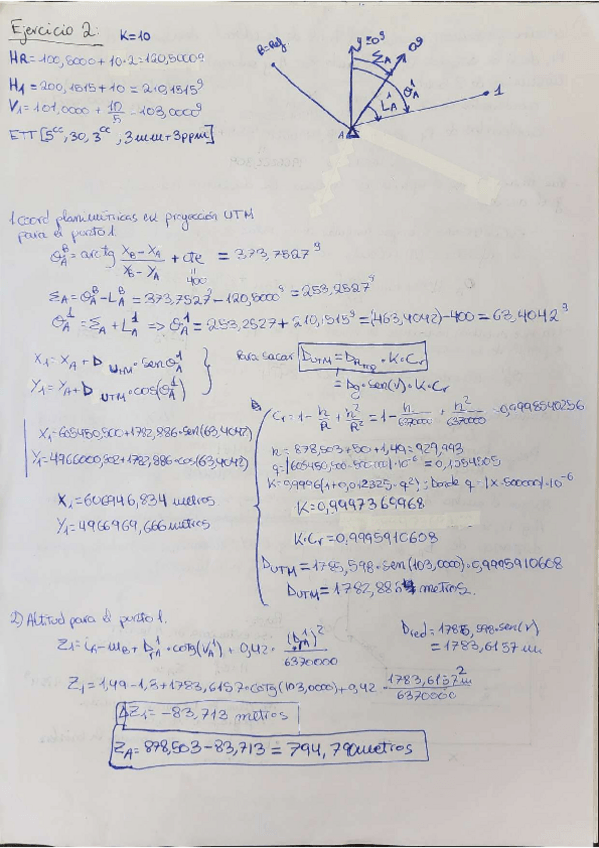 Ejercicio 2: K=10
HR=100,5000+10·2=120,5000g
H1=200,1515+10=210,1515g
V1=101,0000+10/5=103,0000g
ETT[5cc,30,3cc,3mm+3ppm]
B=Ref
y=0g
0g
ΣA
θA1
LA1
A
1
1 Coord planimétricas en proyección UTM
para el punto 1.
θAB=arctg (XB-XA)/(YB-YA) + cte = 373,7527g
400
ΣA=θAB-LAB=373,7527g-120,5000g=253,2527g
θA1=ΣA+LA1 => θA1=253,2527+210,1515g=(463,4042)-400=63,4042g
X1=XA+D UTM·senθA1
Y1=YA+D UTM·cos(θA1)
Para sacar DUTM=DHmp·K·Cr
=Dg·sen(V)·K·Cr
Cr=1-h/R+h²/R²=1-h/6370000+h²/6370000=0,9998540256
h=878,503+50+1,49=929,993
X1=605450,500+1782,886·sen(63,4042)
Y1=4966000,902+1782,886·cos(63,4042)
K=0,9996(1+0,012325·q²); Donde q=(X-500000)·10-6
X1=606946,834 metros
Y1=4966969,666 metros
K=0,9997365968
K·Cr=0,9995910608
DUTM=1785,598·sen(103,0000)·0,9995910608
DUTM=1782,885 metros.
2) Altitud para el punto 1.
Z1=iA-mB+DrA1·cotg(VA1)+0,42·(DrA1)²/6370000
Dred=1785,598·sen(V)
=1783,6157m
Z1=1,49-1,3+1783,6157·cotg(103,0000)+0,42·1783,6157²/6370000
ΔZ1=-83,713 metros
ZA=878,503-83,713=794,790metros